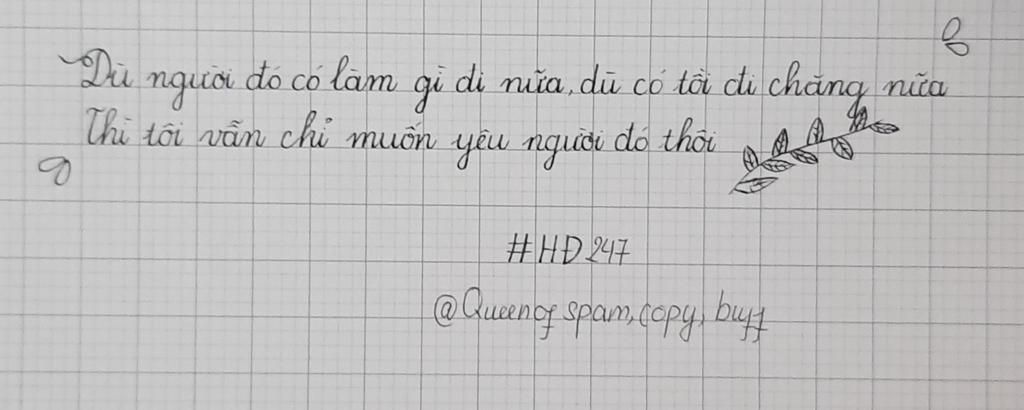 Dù người đó có làm gì đi nữa, dù có tồi đi chăng nữa
Thì tôi vẫn chỉ muốn yêu người đó thôi
#HĐ247
@Queen of spam, copy, buff